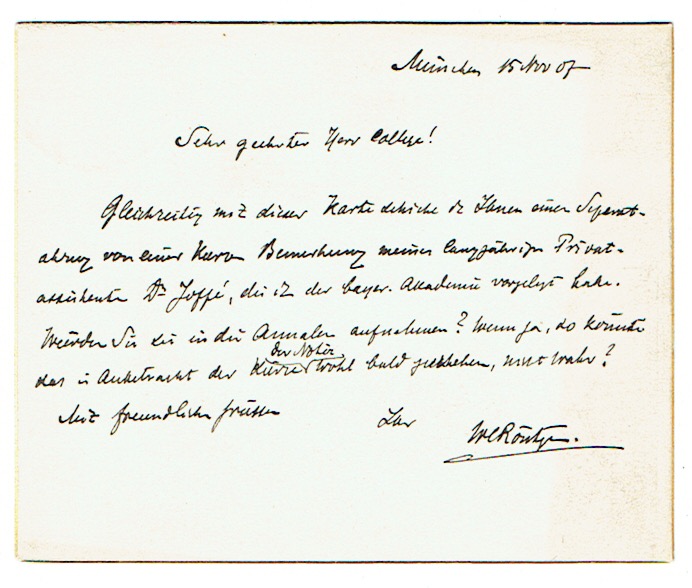 München 15 Nov 07
Sehr geehrter Herr College!
Gleichzeitig mit dieser Karte schicke ich Ihnen einen Separat-
abzug von einer kurzen Bemerkung meines langjährigen Privat-
assistenten Dr Joffé, die ich der bayer. Akademie vorgelegt habe.
Würden Sie sie in die Annalen aufnehmen? Wenn ja, so könnte
der Notiz
das in Anbetracht der Kürze wohl bald geschehen, nicht wahr?
Mit freundlichen Grüssen
Ihr
WCRöntgen.